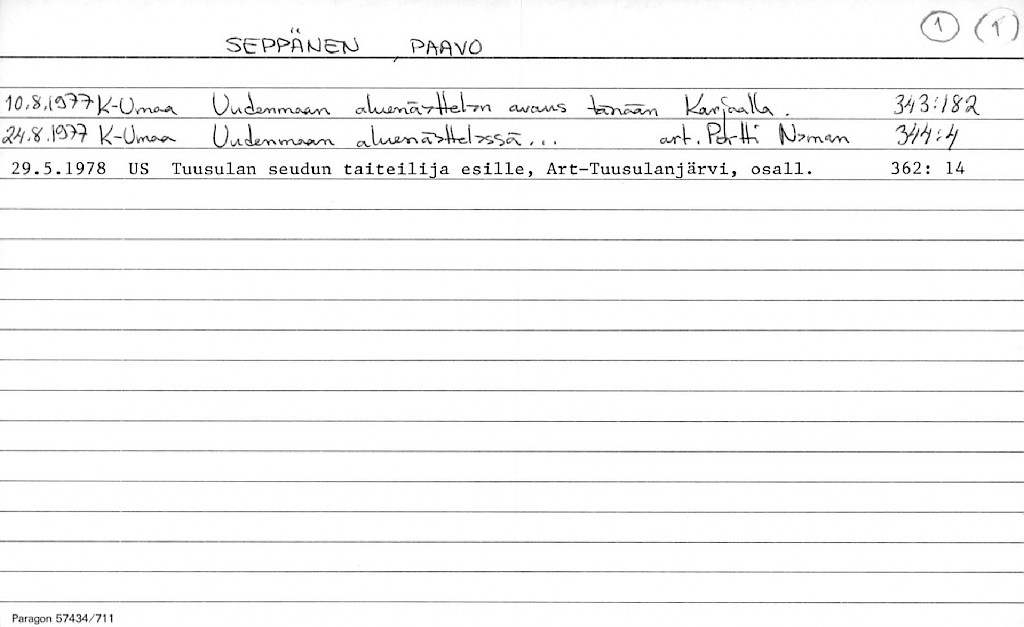 1 T
SEPPÄNEN, PAAVO
10.8.1977 K-Umaa Uudenmaan aluenäyttelyn avaus tänään Karjaalla. 343:182
24.8.1977 K-Umaa Uudenmaan aluenäyttelyssä... art. Pertti Nyman 344:4
29.5.1978 US Tuusulan seudun taiteilija esille, Art-Tuusulanjärvi, osall. 362: 14
Paragon 57434/711